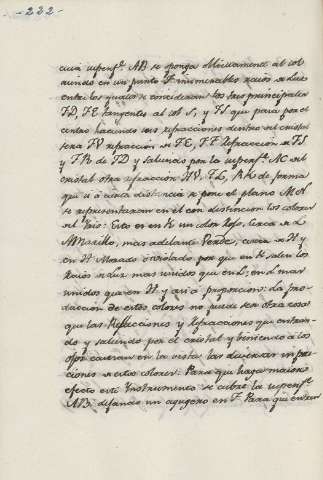 -222-
cuia superf.e AB se ponga obliicuamente al sol
auiendo en un punto F inumerables raios de luz
entre los quales se consideran los tres principales
FD, FE tangentes al sol S, y FS que pasa por el
centro haciendo sus refracciones dentro del cristal
sera FV refraccion de FE, FT Refraccion de FS
y FR de FD y saliendo por la superf.e AC del
cristal otra refraccion de forma
que si á cierta distancia se pone el plano MN
se representaran en el con distincion los colores
del Yris: Esto es en K un color Roso, cerca de L
Amarillo, mas adelante Verde, cerca de H y
en H Morado ó violado por que en K salen los
Raios de Luz mas unidos que en L; en L mas
unidos que en H y asi á proporcion: La pro-
duccion de estos colores no puede ser otra cosa
que las Reflecciones y Refracciones que entran-
do y saliendo por el cristal y beniendo á los
ojos causaran en la vista las diversas impre-
ciones de estos colores. Para que haga maiores
efecto este Instrumento se cubre la superf.e
AB: dejando un agugero en F. Para que entren